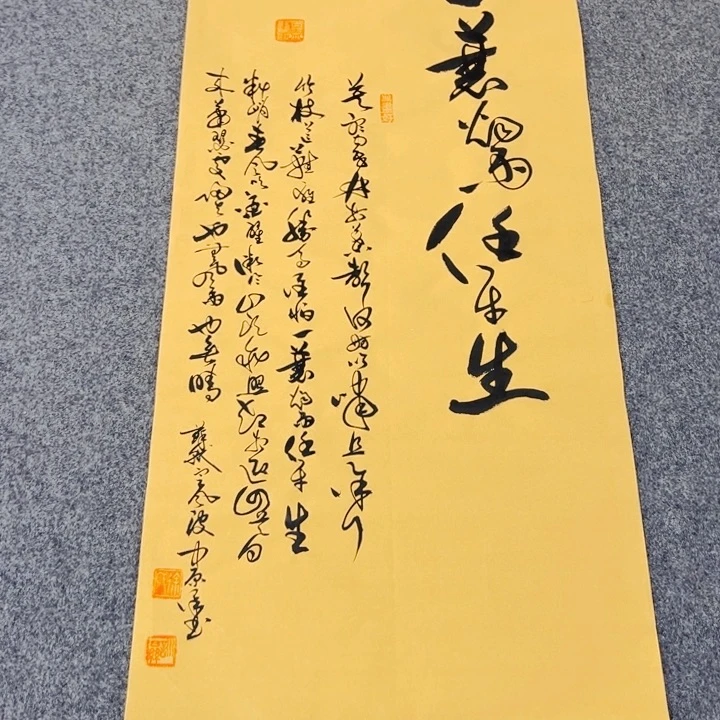 一蓑烟雨任平生
莫聽穿林打葉聲何妨吟嘯且徐行
竹杖芒鞋輕勝馬誰怕一蓑烟雨任平生
料峭春風吹酒醒微冷山頭斜照却相迎回首向
來蕭瑟處歸去也無風雨也無晴
蘇軾定風波 中原